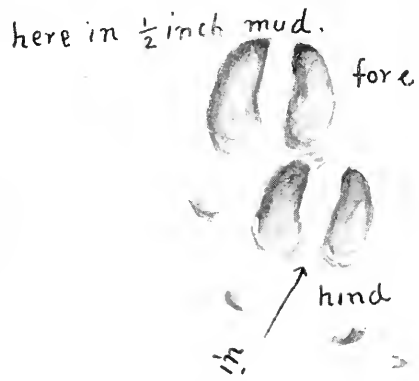 here in ½ inch mud.
fore
hind
in.